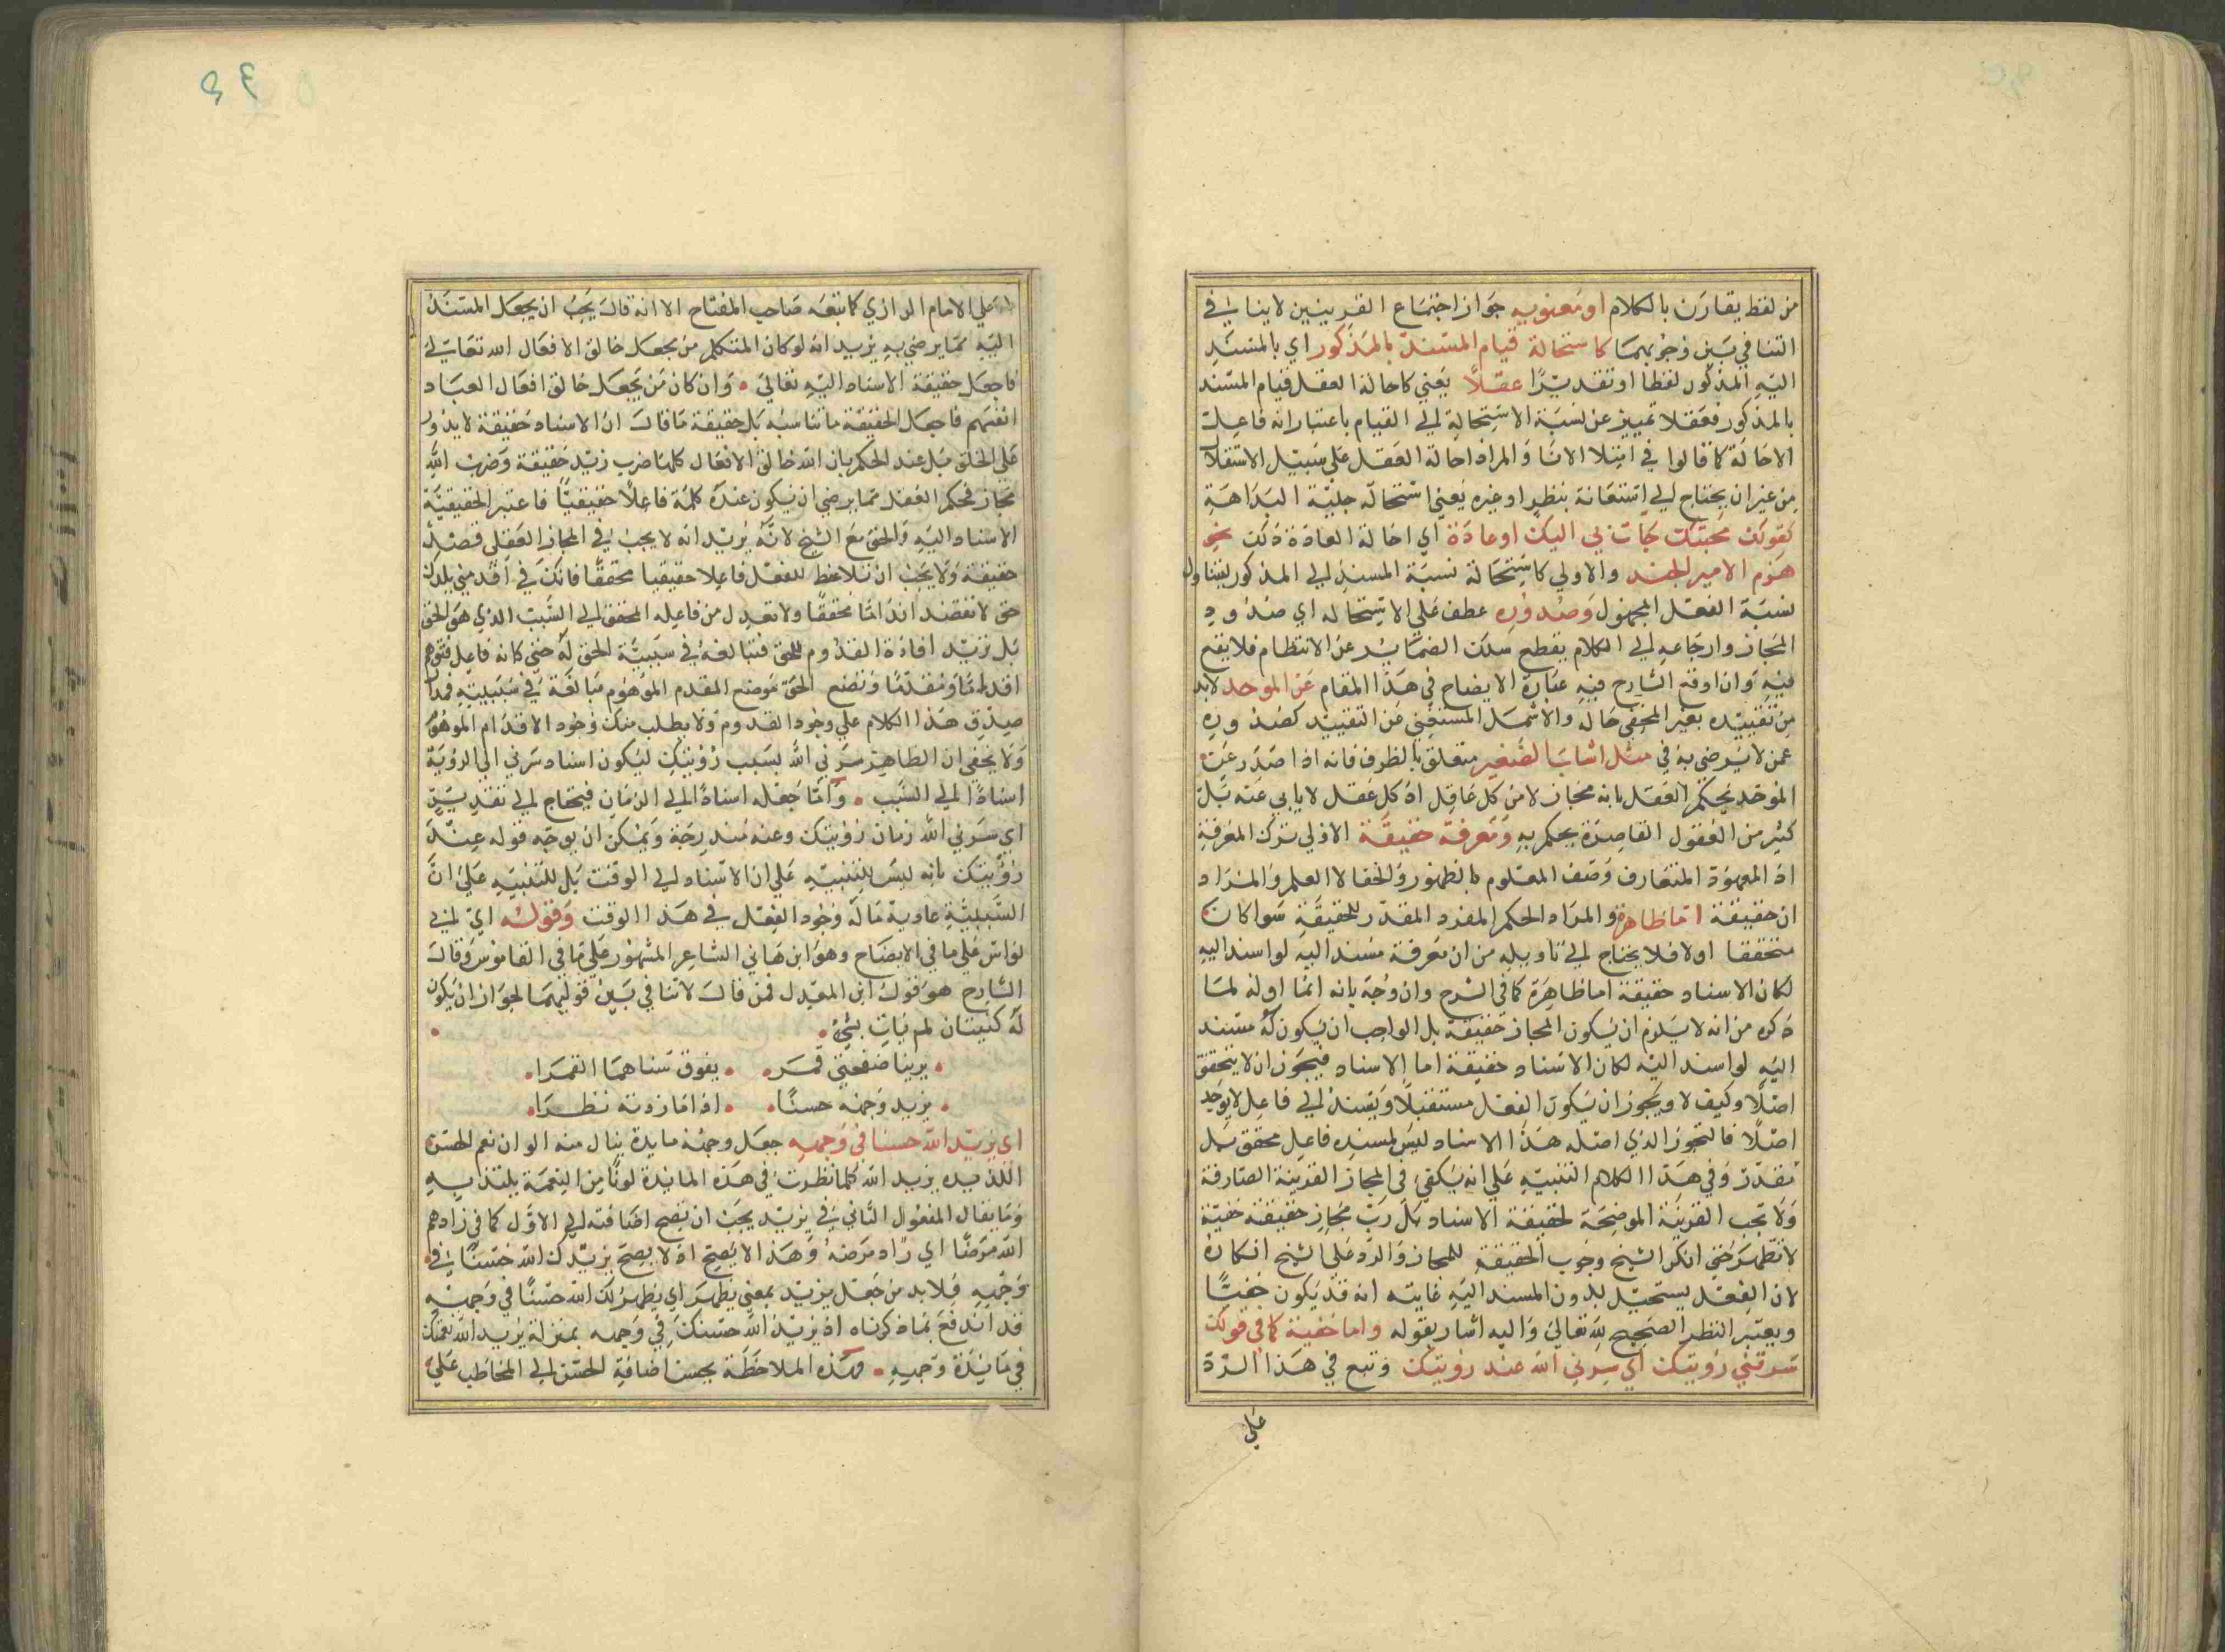 من لفظ يقارن بالكلام او معنويه جواز اجتماع القرينين لا ينافي
التنافي بين وجوبهما كاستحالة قيام المسند بالمذكور اي بالمسند
اليه المذكور لفظا او تقديرًا عقلًا يعني كاحالة العقل قيام المسند
بالمذكور فعقلا تمييز عن نسبة الاستحالة الي القيام باعتبار انه فاعل
الاحالة كما قالوا في امتلا الانا والمراد احالة العقل علي سبيل الاستقلال
من غير ان يحتاج الي استعانة بنظر او غيره يعني استحالة جلية البداهة
كقولك محبتك جات بي اليك او عادة اي احالة العادة ذلك نحو
هزم الامير الجند والاولي كاستحالة نسبة المسند الي المذكور ليتناول
نسبة الفعل المجهول وصدوره عطف علي الاستحاله اي صدور
المجاز وارجاعه الي الكلام يقطع سلك الضماير عن الانتظام فلا يقع
فيه وان اوقع الشارح فيه عبارة الايضاح في هذا المقام عن الموحد لابد
من تقييده بغير المخفي حاله والاشمل المستغني عن التقييد كصدوره
عمن لا يرضي به في مثل اشاب الصغير متعلق بالظرف فانه اذا صدر عن
الموحد يحكم العقل بانه مجاز لا من كل عاقل اذ كل عقل لا يابي عنه بل
كثير من العقول القاصرة يحكم به ومعرفة حقيقة الاولي ترك المعرفة
اذ المعهودة المتعارف وصف المعلوم بالظهور والخفا لا العلم والمراد
ان حقيقة اما ظاهرة والمراد الحكم المفرد المقدر للحقيقة سوا كان
متحققا اولا فلا يحتاج الي تاويله من ان معرفة مسند اليه لو اسند اليه
لكان الاسناد حقيقة اما ظاهرة كما في الشرح وان وجه بانه انما اوله لما
ذكره من انه لا يلزم ان يكون المجاز حقيقة بل الواجب ان يكون له مسند
اليه لو اسند اليه لكان الاسناد حقيقة اما الاسناد فيجوز ان لا يتحقق
اصلًا وكيف لا ويجوز ان يكون الفعل مستقبلًا ويسند الي فاعل لا يوجد
اصلًا فالتجوز الذي اصله هذا الاسناد ليس لمسنده فاعل محقق بل
مقدر وفي هذا الكلام التنبيه علي انه يكفي في المجاز القرينة الصارفة
ولا تجب القرينة الموضحة لحقيقة الاسناد بل رب مجاز حقيقته خفية
لا تظهر حتي انكر الشيخ وجوب الحقيقة للمجاز والرد علي الشيخ انكاره
لان الفعل يستحيل بدون المسند اليه غايته انه قد يكون خفيًا
ويعتبر النظر الصحيح لله تعالي واليه اشار بقوله واما خفية كما في قولك
سرتني رؤيتك اي سرني الله عند رؤيتك وتبع في هذا الرد
علي
علي الامام الرازي كما تبعه صاحب المفتاح الا انه قال يجب ان يجعل المسند
اليه مما يرضي به يريد انه لو كان المتكلم من يجعل خالق الافعال الله تعالي
فاجعل حقيقة الاسناد اليه تعالي • وان كان من يجعل خالق افعال العباد
انفسهم فاجعل الحقيقة ما تناسبه بل حقيقة ما قال ان الاسناد حقيقة لا يدور
علي الخلق بل عند الحكم بان الله خالق الافعال كلها ضرب زيد حقيقة وضرب الله
مجاز فحكم العقل مما يرضي ان يكون عنده كلمة فاعلًا حقيقيًا فاعتبر الحقيقية
الاسناد اليه والحق مع الشيخ لانه يريد انه لا يجب في المجاز العقلي قصد
حقيقة ولا يجب ان تلاحظ للفعل فاعلا حقيقيا محققًا فانك في اقدمني بلدك
حق لا تقصد اقدامًا محققًا ولا تعدل من فاعله المحقق الي السبب الذي هو الحق
بل تريد افادة القدوم للحق فتبالغ في سببية الحق له حتي كانه فاعل فتوهم
اقدامًا ومقدمًا وتضع الحق موضع المقدم الموهوم مبالغة في سببيته فمدار
صدق هذا الكلام علي وجود القدوم ولا يطلب منك وجود الاقدام الموهوم
ولا يخفي ان الظاهر سرني الله بسبب رؤيتك ليكون اسناد سرني الي الرؤية
اسنادًا الي السبب • واما جعله اسنادًا الي الزمان فيحتاج الي تقدير
اي سرني الله زمان رؤيتك وعنه مندرجة ويمكن ان يوجه قوله عند
رؤيتك بانه ليس للتنبيه علي ان الاسناد الي الوقت بل للتنبيه علي ان
السببية عادية ما له وجود الفعل في هذا الوقت وقوله اي ابي
نواس علي ما في الايضاح وهو ابن هاني الشاعر المشهور علي ما في القاموس وقال
الشارح هو قول ابن المعدل فمن قال لا تنافي بين قوليهما لجواز ان يكون
له كنيتان لم يات بشئ •
• يرينا صفحتي قمر • • يفوق سناهما القمرا •
• يزيد وجهه حسنًا • • اذا ما زدته نظرا •
اي يزيد الله حسنا في وجهه جعل وجهه مايدة ينال منه الوان نعم الحسن
اللذيذه يزيد الله كلما نظرت في هذه المايدة لونًا من النعمة يلتذ به
وما يقال المفعول الثاني في يزيد يجب ان يصح اضافته الي الاول كما في زادهم
الله مرضًا اي زاد مرضه وهذا لا يصح اذ لا يصح يزيدك الله حسنًا في
وجهه فلابد من جعل يزيد بمعني يظهر اي يظهر لك الله حسنًا في وجهه
قد اندفع بما ذكرناه اذ يزيد الله حسنك في وجهه بمنزلة يزيد الله نعمتك
في مايدة وجهه • وبهذه الملاحظة يحسن اضافة الحسن الي المخاطب علي